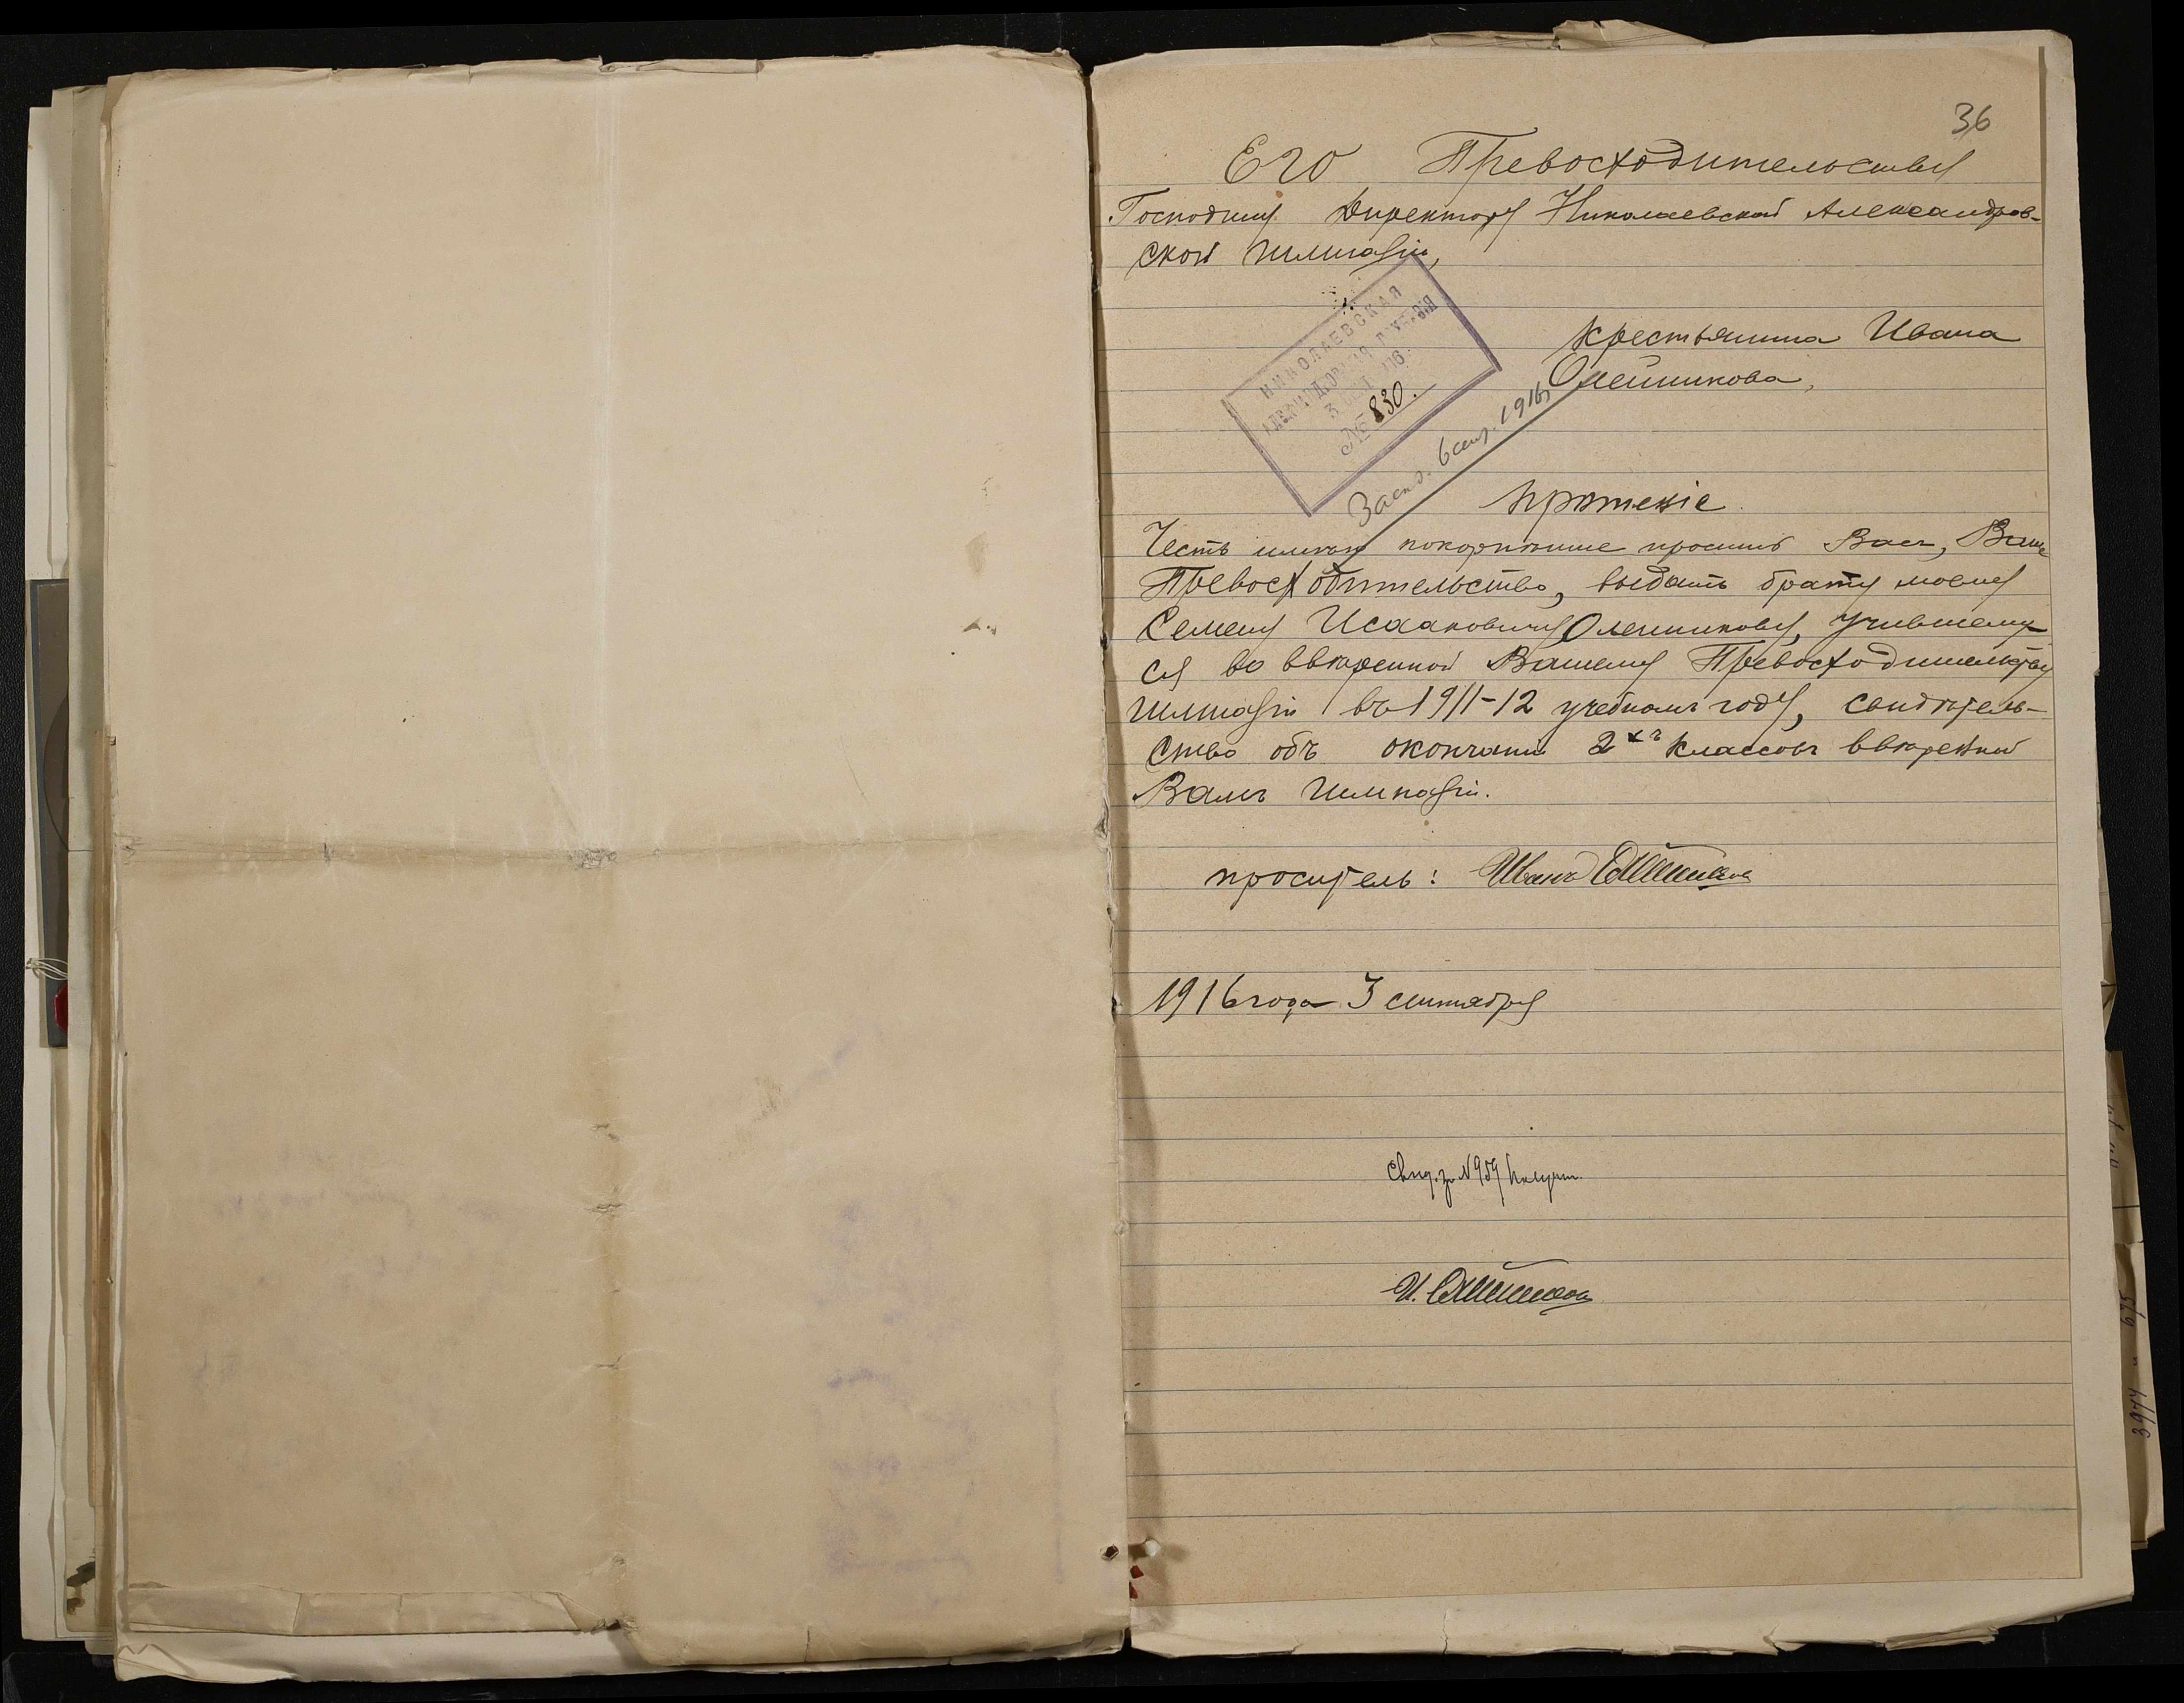 36
Его Превосходительству
Господину Директору Николаевской Александров-
ской гимназіи,
крестьянина Ивана
Олейникова,
НИКОЛАЕВСКАЯ
АЛЕКСАНДРОВСКАЯ ГИМНАЗІЯ
3 1916
№ 830.
6 сент. 1916
прошеніе
Честь имѣю покорнѣйше просить Васъ, Ваше
Превосходительство, выдать брату моему
Семену Исааковичу Олейникову, учившему-
ся во ввѣренной Вашему Превосходительству
гимназіи въ 1911-12 учебномъ году, свидѣтель-
ство объ окончаніи 2хъ классовъ ввѣренной
Вамъ гимназіи.
проситель: Иванъ Олейниковъ
1916 года 3 сентября
Свид. за № 959 получил.
И. Олейниковъ
3974 и 675